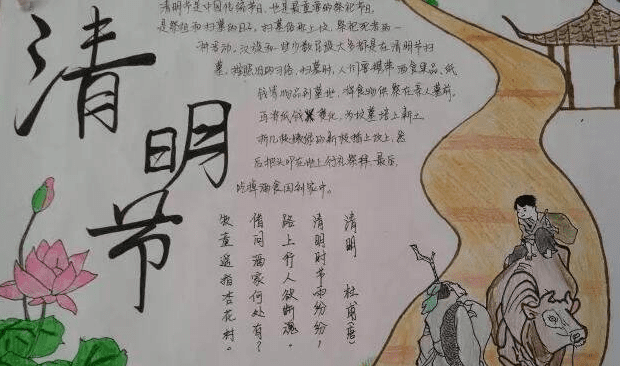 清明节
清明节是中国传统节日，也是最重要的祭祀节日，
是祭祖和扫墓的日子。扫墓俗称上坟，祭祀死者的一
种活动。汉族和一些少数民族大多都是在清明节扫
墓。按照旧的习俗，扫墓时，人们要携带酒食果品、纸
钱等物品到墓地，将食物供祭在亲人墓前，
再将纸钱焚化，为坟墓培上新土，
折几枝嫩绿的新枝插上坟上，然
后把头叩在地上行礼祭拜，最后
吃掉酒食回到家中。
清明 杜甫(唐)
清明时节雨纷纷，
路上行人欲断魂。
借问酒家何处有？
牧童遥指杏花村。